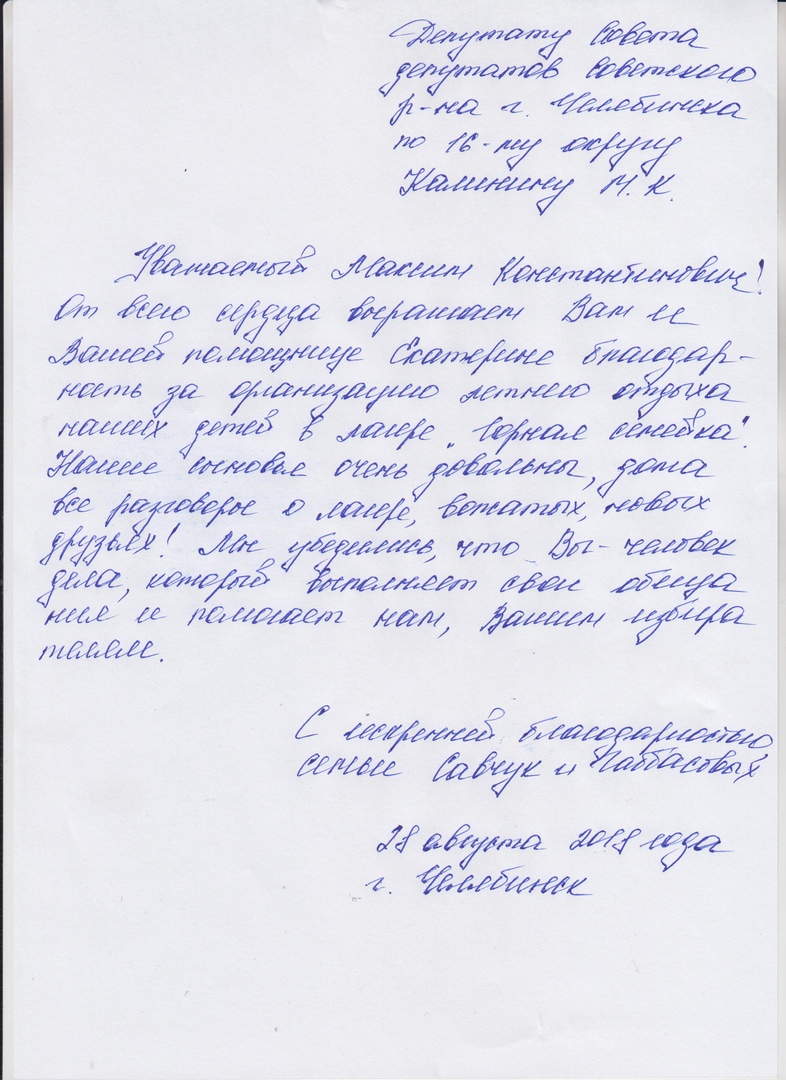 Депутату Совета
депутатов Советского
р-на г. Челябинска
по 16-му округу
Калинину М. К.
Уважаемый Максим Константинович!
От всего сердца выражаем Вам и
Вашей помощнице Екатерине благодар-
ность за организацию летнего отдыха
наших детей в лагере „Горная семейка".
Наши сыновья очень довольны, дома
все разговоры о лагере, вожатых, новых
друзьях! Мы убедились, что Вы - человек
дела, который выполняет свои обеща
ния и помогает нам, Вашим избира
телям.
С искренней благодарностью
семьи Савчук и
августа 2018 года
г. Челябинск